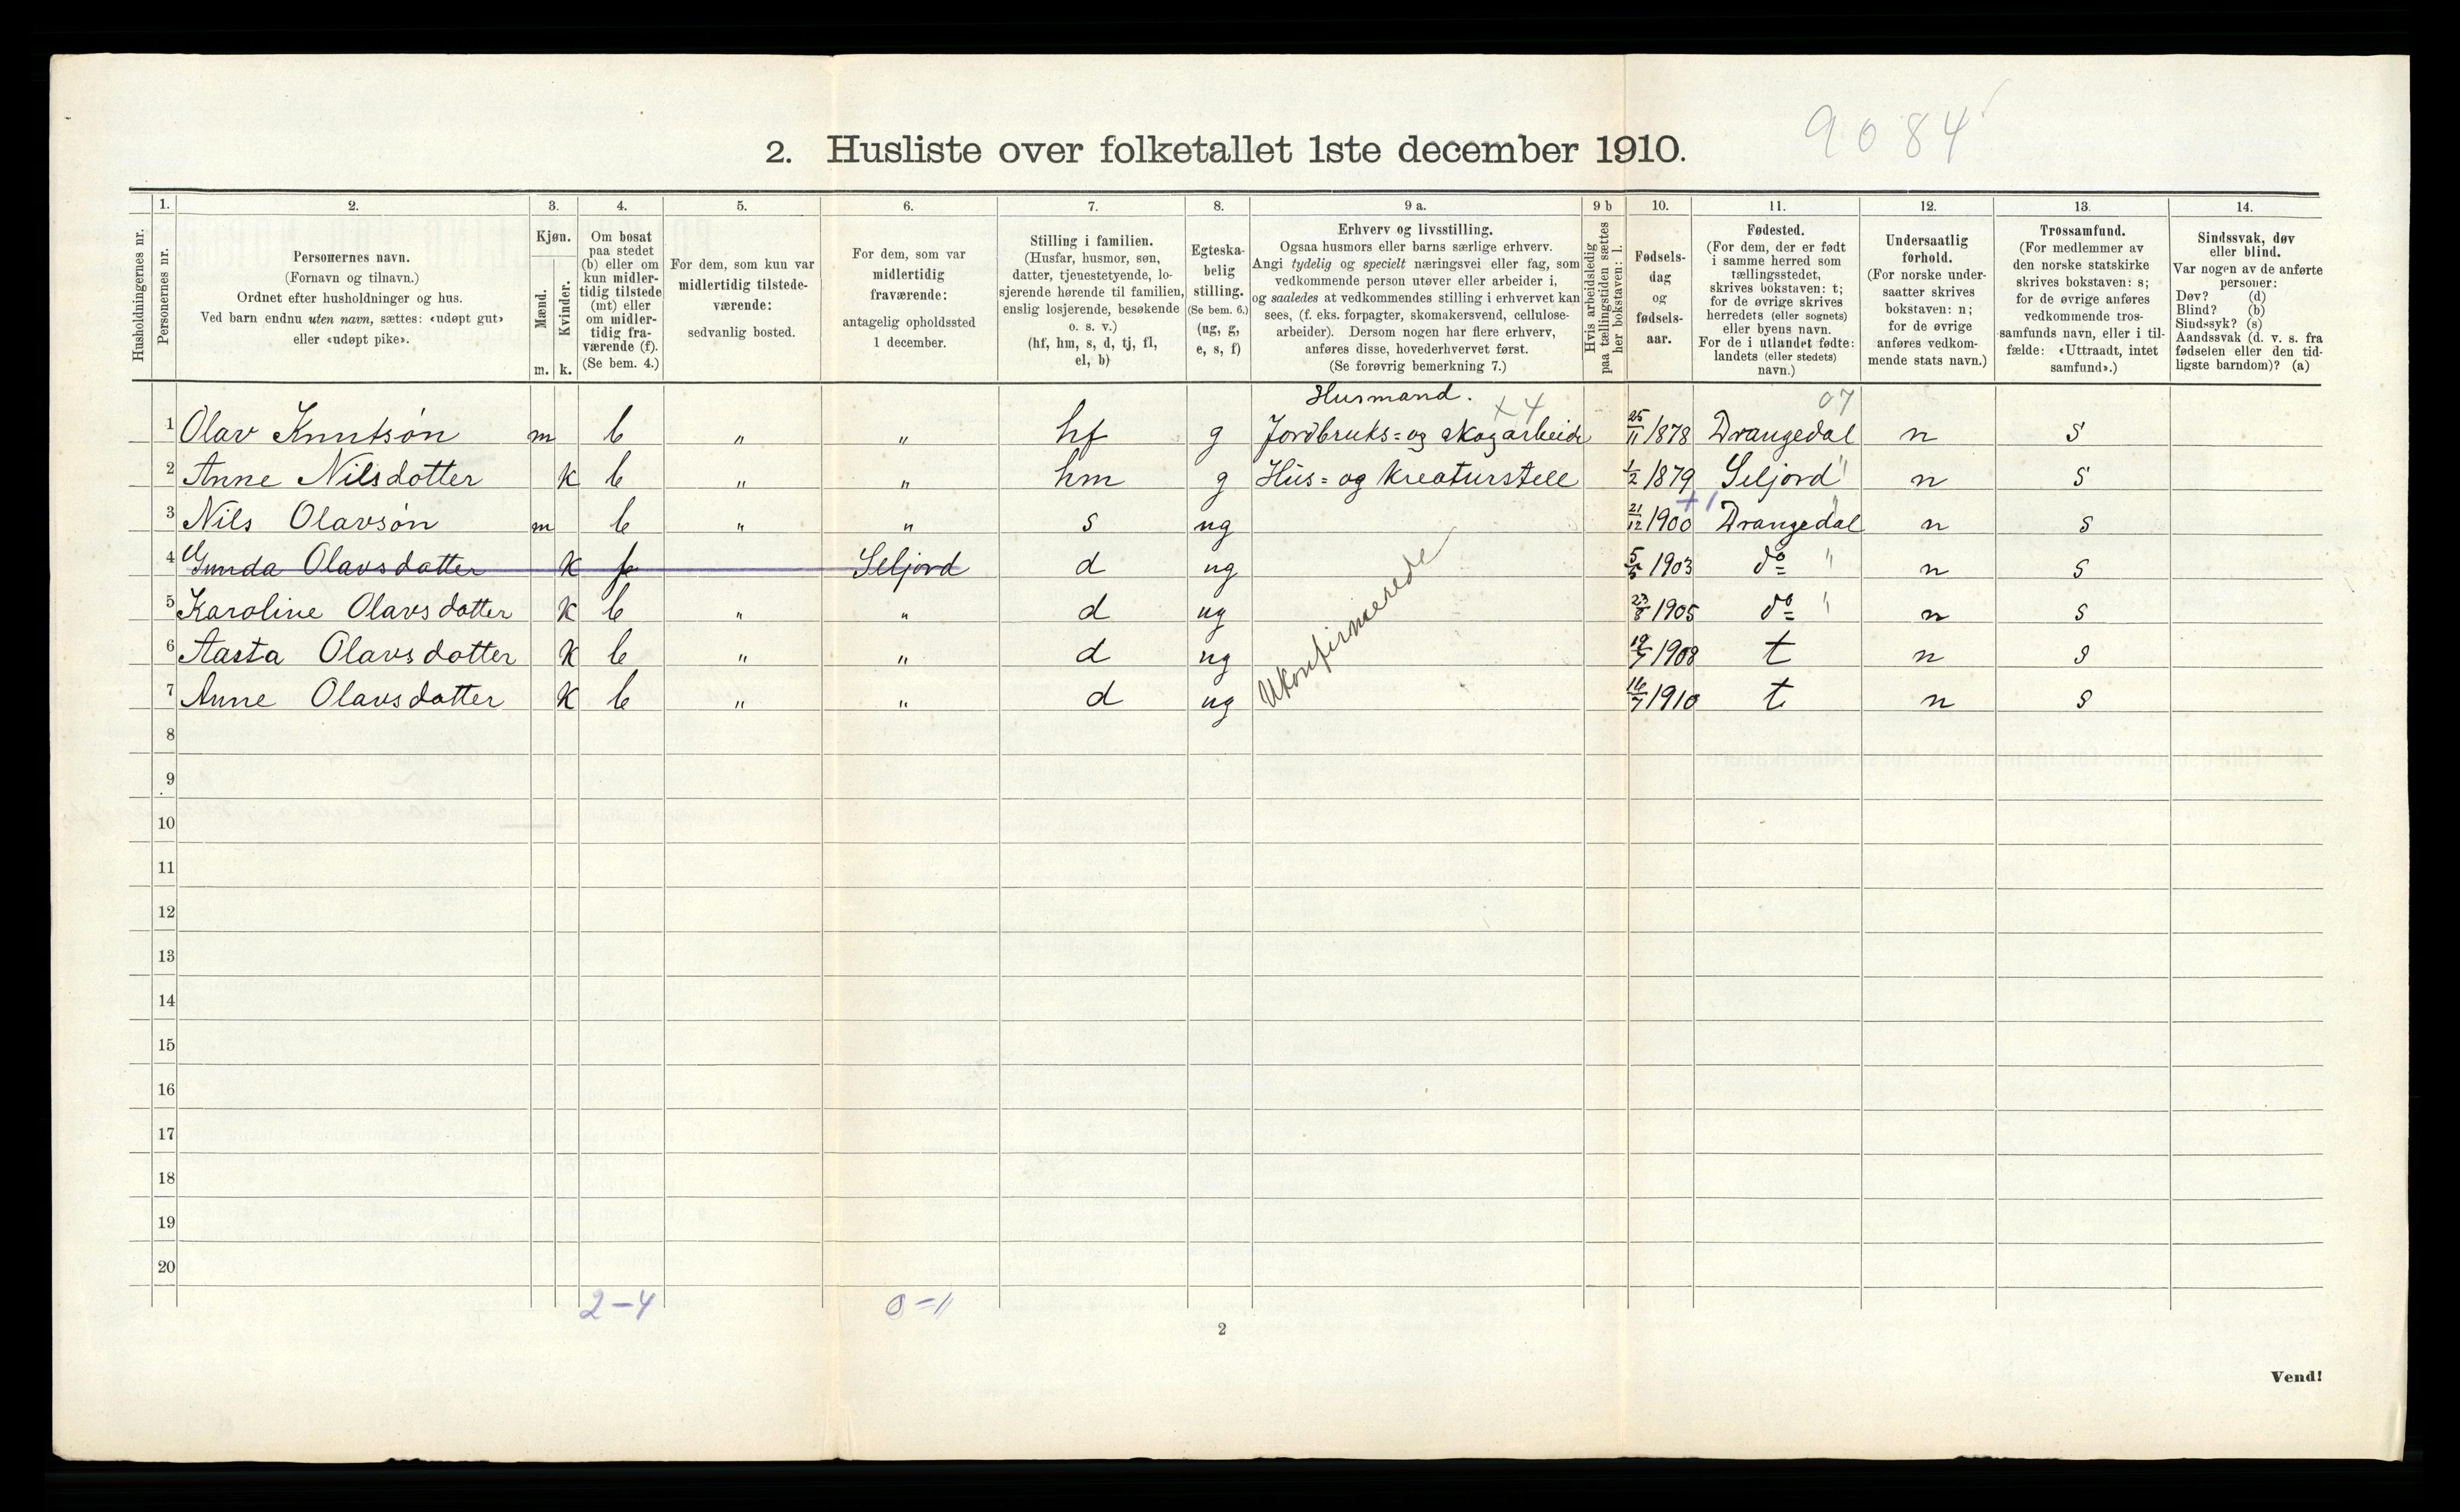 9084
2. Husliste over folketallet 1ste december 1910.
Husholdningernes nr.
1. Personernes nr.
2. Personernes navn.
(Fornavn og tilnavn.)
Ordnet efter husholdninger og hus.
Ved barn endnu uten navn, sættes: «udøpt gut»
eller «udøpt pike».
3. Kjøn.
Mænd. Kvinder.
m. k.
4. Om bosat
paa stedet
(b) eller om
kun midler-
tidig tilstede
(mt) eller
om midler-
tidig fra-
værende (f).
(Se bem. 4.)
5. For dem, som kun var
midlertidig tilstede-
værende:
sedvanlig bosted.
6. For dem, som var
midlertidig
fraværende:
antagelig opholdssted
1 december.
7. Stilling i familien.
(Husfar, husmor, søn,
datter, tjenestetyende, lo-
sjerende hørende til familien,
enslig losjerende, besøkende
o. s. v.)
(hf, hm, s, d, tj, fl,
el, b)
8. Egteska-
belig
stilling.
(Se bem. 6.)
(ug, g,
e, s, f)
9 a. Erhverv og livsstilling.
Ogsaa husmors eller barns særlige erhverv.
Angi tydelig og specielt næringsvei eller fag, som
vedkommende person utøver eller arbeider i,
og saaledes at vedkommendes stilling i erhvervet kan
sees, (f. eks. forpagter, skomakersvend, cellulose-
arbeider). Dersom nogen har flere erhverv,
anføres disse, hovederhvervet først.
(Se forøvrig bemerkning 7.)
9 b Hvis arbeidsledig
paa tællingstiden sættes
her bokstaven: l.
10. Fødsels-
dag
og
fødsels-
aar.
11. Fødested.
(For dem, der er født
i samme herred som
tællingsstedet,
skrives bokstaven: t;
for de øvrige skrives
herredets (eller sognets)
eller byens navn.
For de i utlandet fødte:
landets (eller stedets)
navn.)
12. Undersaatlig
forhold.
(For norske under-
saatter skrives
bokstaven: n;
for de øvrige
anføres vedkom-
mende stats navn.)
13. Trossamfund.
(For medlemmer av
den norske statskirke
skrives bokstaven: s;
for de øvrige anføres
vedkommende tros-
samfunds navn, eller i til-
fælde: «Uttraadt, intet
samfund».)
14. Sindssvak, døv
eller blind.
Var nogen av de anførte
personer:
Døv? (d)
Blind? (b)
Sindssyk? (s)
Aandssvak (d. v. s. fra
fødselen eller den tid-
ligste barndom)? (a)
Husmand. x 4 07
1 Olav Knutsøn m b " " hf g Jordbruks= og skogarbeide 25/11 1878 Drangedal n s
2 Anne Nilsdotter k b " " hm g Hus= og kreaturstell 1/2 1879 Seljord " n s
+1
3 Nils Olavsøn m b " " s ug 21/12 1900 Drangedal " n s
4 Gunda Olavsdatter k f Seljord d ug 5/5 1903 do " n s
5 Karoline Olavsdotter k b " " d ug 23/8 1905 do " n s
6 Aasta Olavsdotter k b " " d ug 1908 t n s
7 Anne Olavsdotter k b " " d ug 16/7 1910 t n s
Ukonfirmerede
8
9
10
11
12
13
14
15
16
17
18
19
20
2-4 0-1
2
Vend!